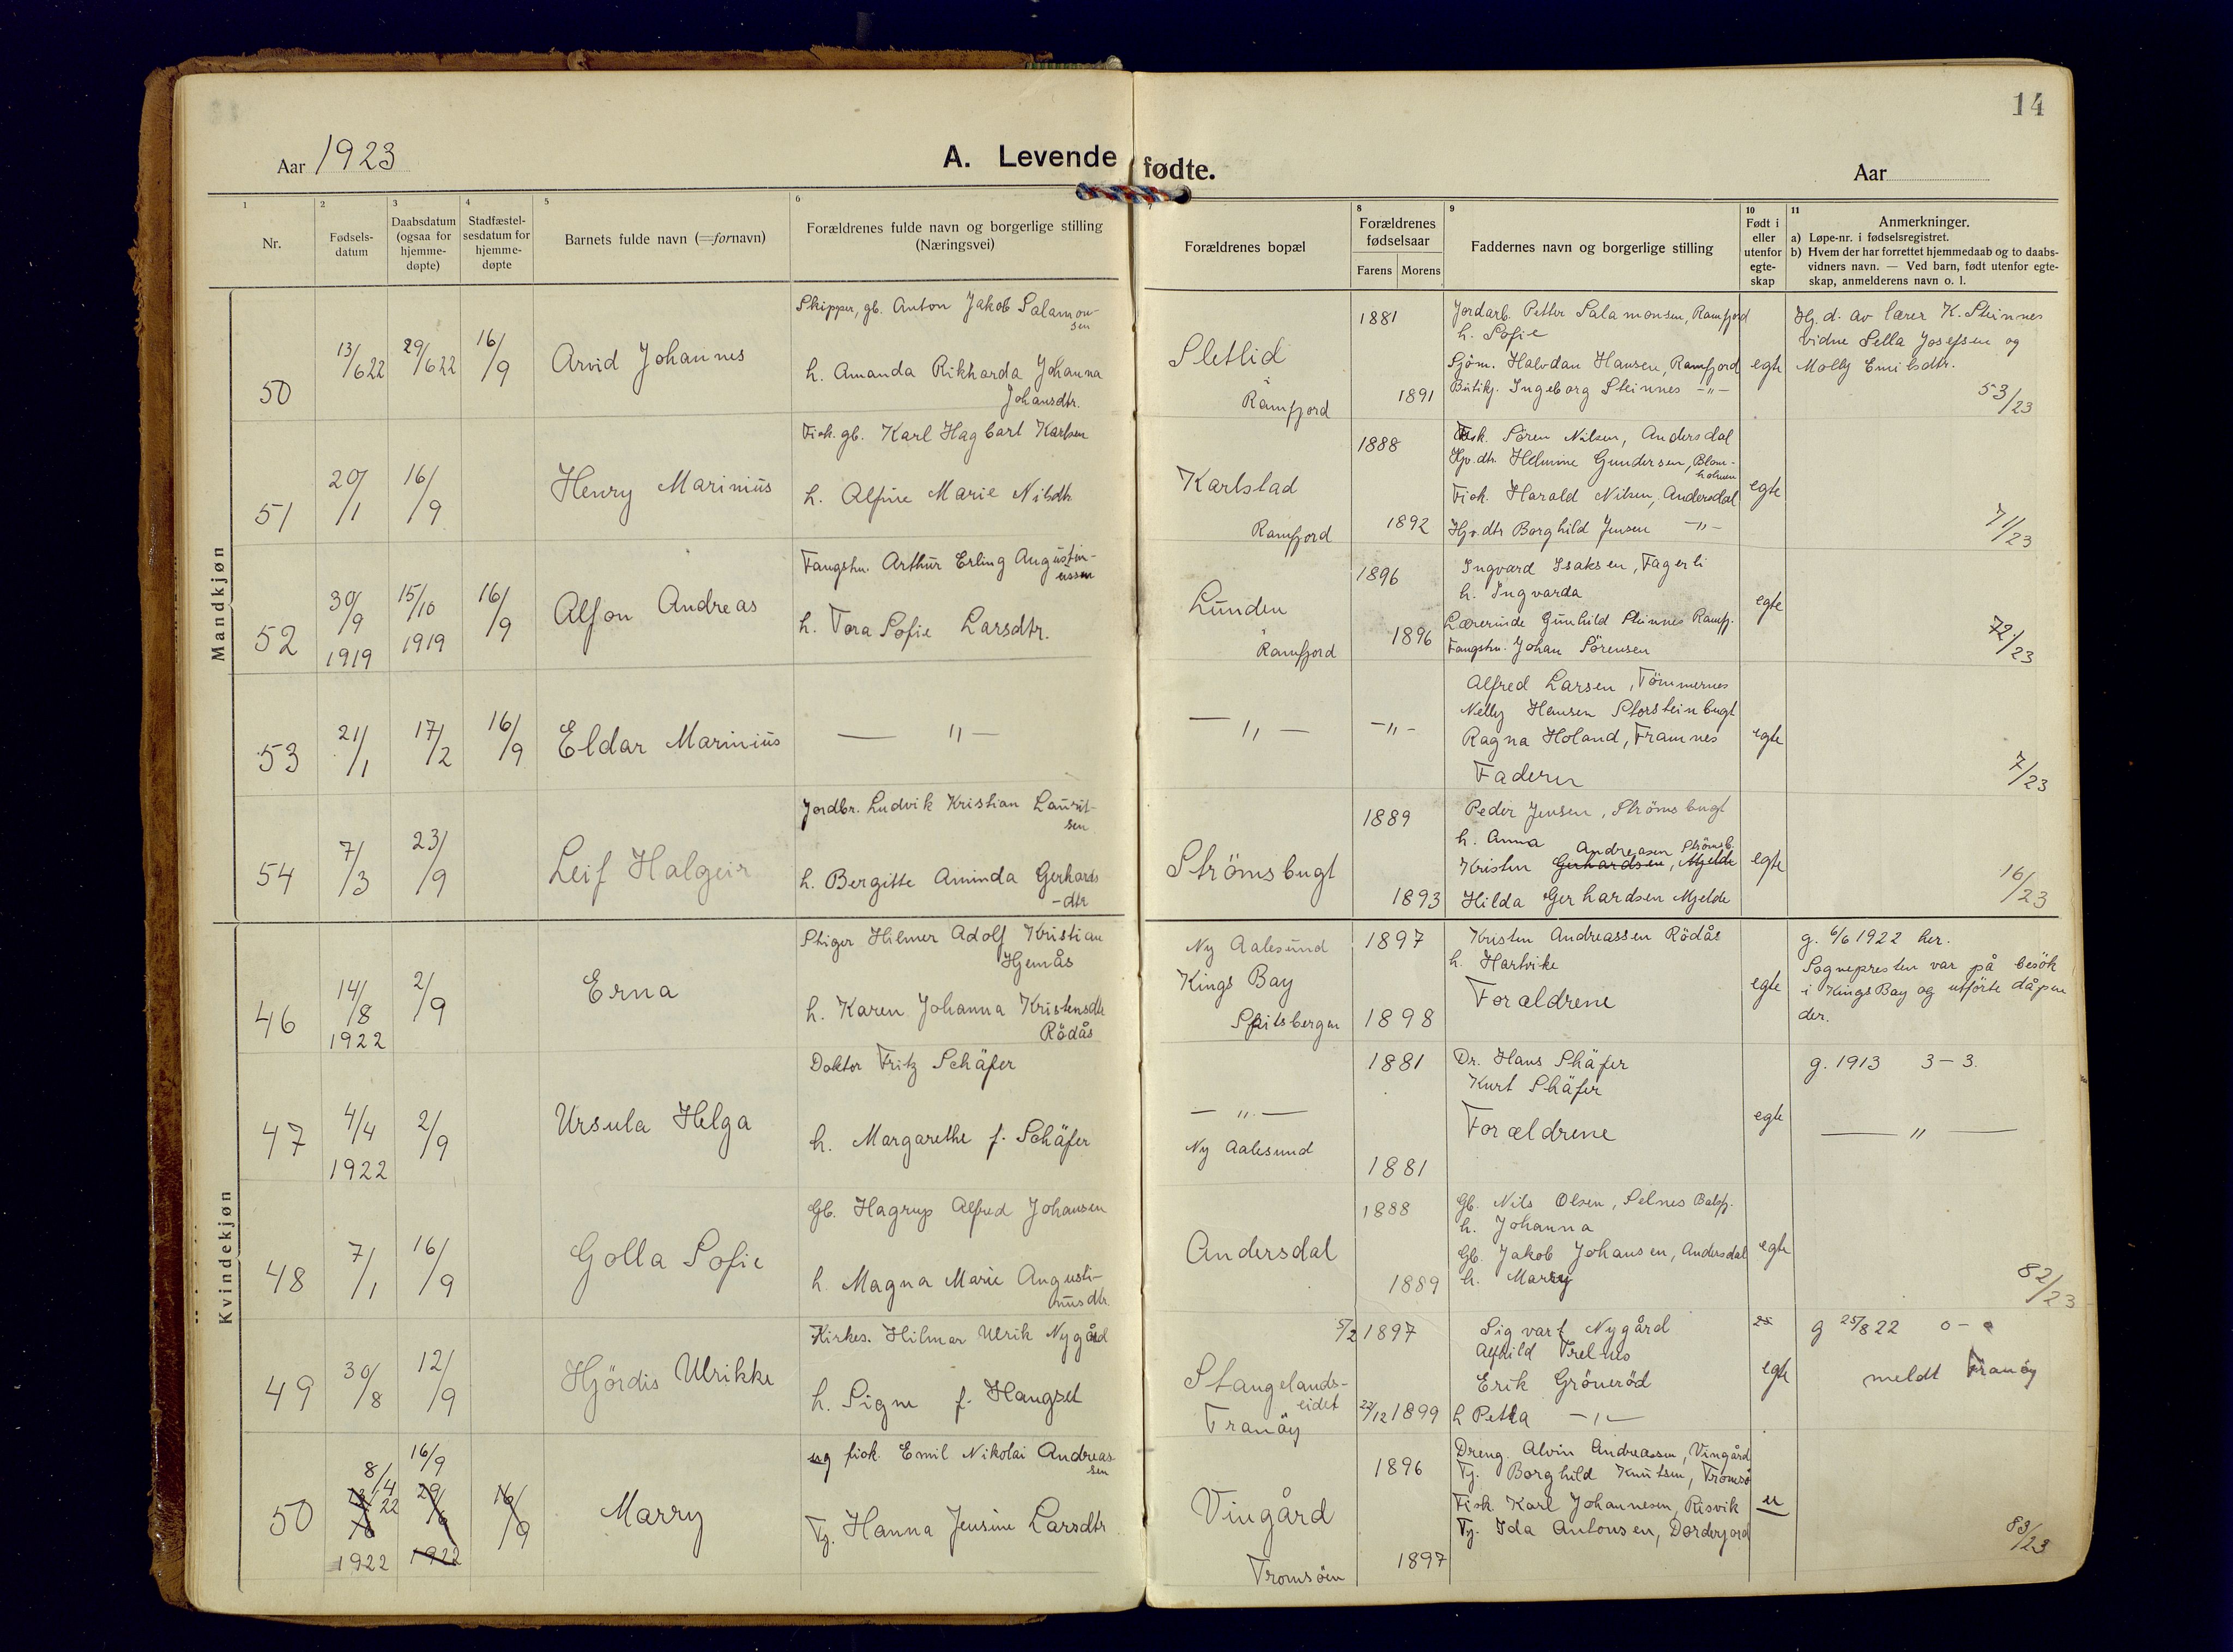 14
Aar 1923
A. Levende fødte.
Aar
1 2 3 4 5 6 8 9 10 11
Nr.
Fødsels-
datum
Daabsdatum
(ogsaa for
hjemme-
døpte)
Stadfæstel-
sesdatum for
hjemme-
døpte
Barnets fulde navn (=fornavn)
Forældrenes fulde navn og borgerlige stilling
(Næringsvei)
Forældrenes bopæl
Forældrenes
fødselsaar
Farens Morens
Faddernes navn og borgerlige stilling
Født i
eller
utenfor
egte-
skap
Anmerkninger.
a) Løpe-nr. i fødselsregistret.
b) Hvem der har forrettet hjemmedaab og to daabs-
vidners navn. — Ved barn, født utenfor egte-
skap, anmelderens navn o. l.
Mandkjøn
50
13/622
29/622
16/9
Arvid Johannes
Skipper, gb. Anton Jakob Salamon-
sen
h. Amanda Rikharda Johanna
Johansdtr.
Sletlid
Ramfjord
1881
1891
Jordarb. Petter Salamonsen, Ramfjord
h. Sofie
Sjöm. Halvdan Hansen, Ramfjord
Butikj. Ingeborg Steinnes -"-
egte
Hj. d. av lærer K. Steinnes
vidne Sella Josefsen og
Molly Emilsdtr.
53/23
51
20/1
16/9
Henry Marinius
Fisk. gb. Karl Hagbart Karlsen
h. Alfine Marie Nilsdtr
Karlstad
Ramfjord
1888
1892
Fisk. Sören Nilsen, Andersdal
Hjv. dtr. Helmine Gundersen, Blom-
holmen
Fisk. Harald Nilsen, Andersdal
Hjv. dtr Borghild Jensen -"-
egte
71/23
52
30/9
1919
15/10
1919
16/9
Alfon Andreas
Fangstm. Arthur Erling Augustin-
ussen
h. Tora Sofie Larsdtr.
Lunden
Ramfjord
1896
1896
Ingvard Isaksen, Fagerli
h. Ingvarda
Lærerinde Gunhild Steinnes Ramfj.
Fangstm. Johan Sörensen
egte
72/23
53
21/1
17/2
16/9
Eldar Marinius
— " —
— " —
-"-
Alfred Larsen, Tömmernes
Nelly Hansen Storsteinbugt
Ragna Holand, Framnes
Faderen
egte
7/23
54
7/3
23/9
Leif Halgeir
Jordbr. Ludvik Kristian Laurit-
sen
h. Bergitte Aminda Gerhards
-dtr
Strömsbugt
1889
1893
Peder Jensen, Strömsbugt
h. Anna
Andreasen Strömsb.
Kristen Gerhardsen, Mjelde
Hilda Gerhardsen Mjelde
egte
16/23
Kvindekjøn
46
14/8
1922
2/9
Erna
Stiger Hilmer Adolf Kristian
Hjemås
h. Karen Johanna Kristensdtr
Rödås
Ny Aalesund
Kings Bay
Spitsbergen
1897
1898
Kristen Andreassen Rödås
h. Hartvike
Forældrene
egte
g. 6/6 1922 her.
Sognepresten var på besök
i Kings Bay og utförte dåpen
der.
47
4/4
1922
2/9
Ursula Helga
Doktor Fritz Schäfer
h. Margarethe f. Schäfer
— " —
Ny Aalesund
1881
1881
Dr. Hans Shäfer
Kurt Shäfer
Forældrene
egte
g. 1913 3-3.
— " —
48
7/1
16/9
Golla Sofie
Gb. Hagrup Alfred Johansen
h. Magna Marie Augusti-
nusdtr.
Andersdal
1888
1889
Gb. Nils Olsen, Selnes Balsfj.
h. Johanna
Gb. Jakob Johansen, Andersdal
h. Marry
egte
82/23
49
30/8
12/9
Hjördis Ulrikke
Kirkes. Hilmar Ulrik Nygård
h. Signe f. Haugset
Stangelands-
eidet
Tranöy
5/2 1897
22/12 1899
Sigvart Nygård
Alfhild Trelnes
Erik Grönerød
h Petra -"-
egte
g 25/8 22 0-0
meldt Tranöy
50
8/4 22
1922
16/9
29/6
1922
16/9
Marry
ug fisk. Emil Nikolai Andreas-
sen
Tj. Hanna Jensine Larsdtr
Vingård
Tromsöen
1896
1897
Dreng. Alvin Andreassen, Vingård
Tj. Borghild Knutsen, Tromsö
Fisk. Karl Johannesen, Risvik
Tj. Ida Antonsen, Dorderjord
u
83/23